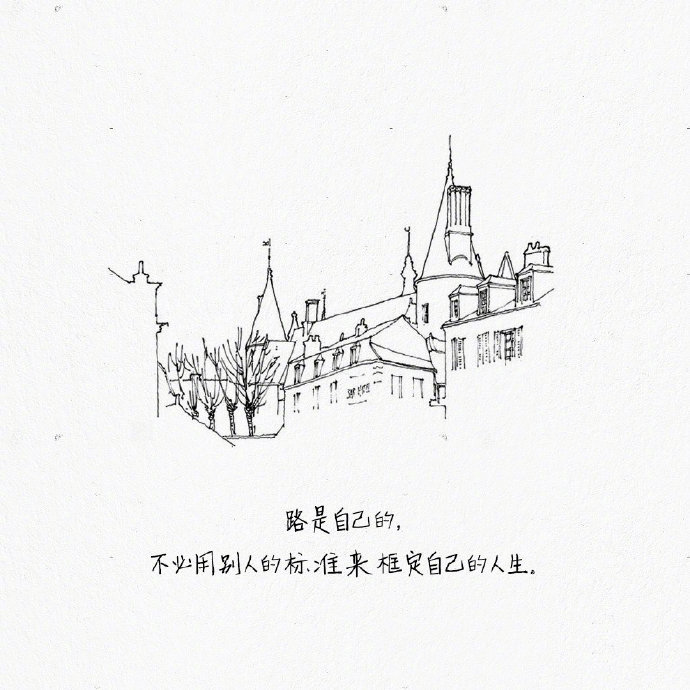 路是自己的，
不必用别人的标准来框定自己的人生。